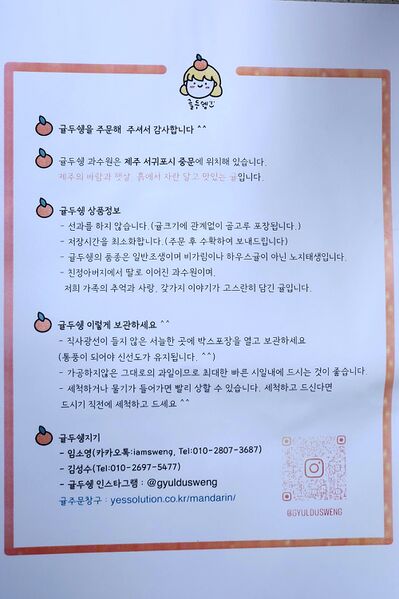 귤두쉥
귤두쉥을 주문해 주셔서 감사합니다 ^^
귤두쉥 과수원은 제주 서귀포시 중문에 위치해 있습니다.
제주의 바람과 햇살, 흙에서 자란 달고 맛있는 귤입니다.
귤두쉥 상품정보
- 선과를 하지 않습니다.(귤크기에 관계없이 골고루 포장됩니다.)
- 저장시간을 최소화합니다.(주문 후 수확하여 보내드립니다)
- 귤두쉥의 품종은 일반조생이며 비가림이나 하우스귤이 아닌 노지태생입니다.
- 친정아버지에서 딸로 이어진 과수원이며,
저희 가족의 추억과 사랑, 갖가지 이야기가 고스란히 담긴 귤입니다.
귤두쉥 이렇게 보관하세요 ^^
- 직사광선이 들지 않은 서늘한 곳에 박스포장을 열고 보관하세요
(통풍이 되어야 신선도가 유지됩니다. ^^)
- 가공하지않은 그대로의 과일이므로 최대한 빠른 시일내에 드시는 것이 좋습니다.
- 세척하거나 물기가 들어가면 빨리 상할 수 있습니다. 세척하고 드신다면
드시기 직전에 세척하고 드세요 ^^
귤두쉥지기
- 임소영(카카오톡:iamsweng, Tel:010-2807-3687)
- 김성수(Tel:010-2697-5477)
- 귤두쉥 인스타그램 : @gyuldusweng
귤주문창구 : yessolution.co.kr/mandarin/
@GYULDUSWENG